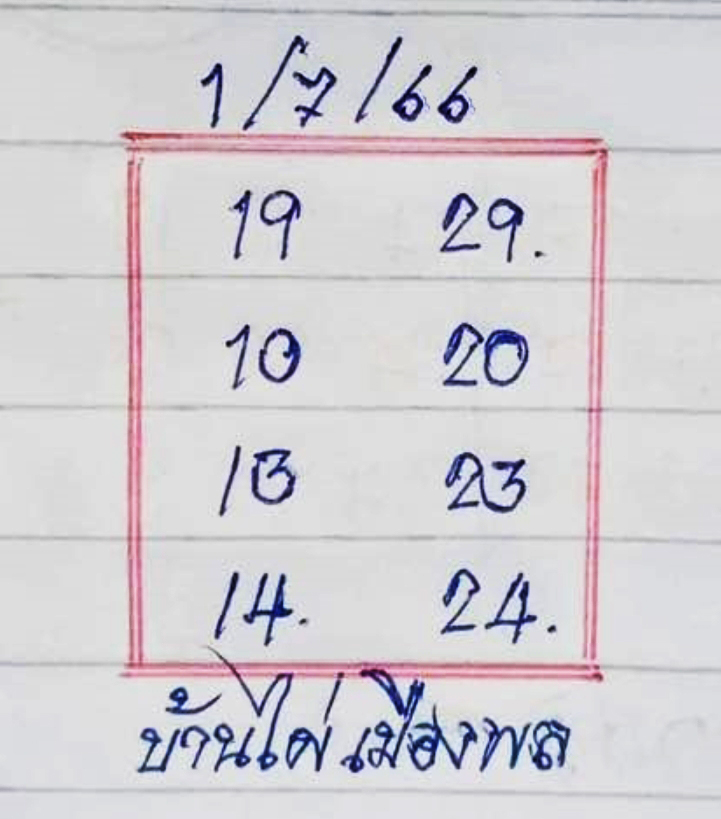 1/7/66
19 29.
10 20
13 23
14. 24.
บ้านไผ่ เมืองพล